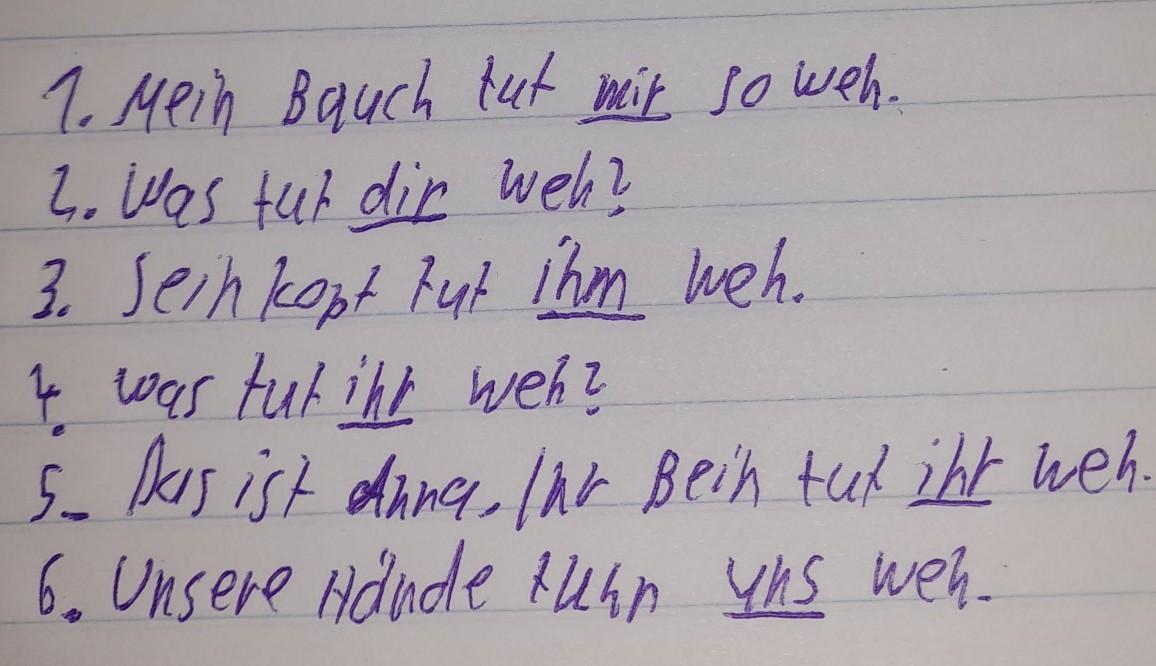 1. Mein Bauch tut mir so weh.
2. Was tut dir weh?
3. Sein kopf tut ihm weh.
4. was tut ihr weh?
5. Das ist Anna. Ihr Bein tut ihr weh.
6. Unsere Hände tuhn uns weh.